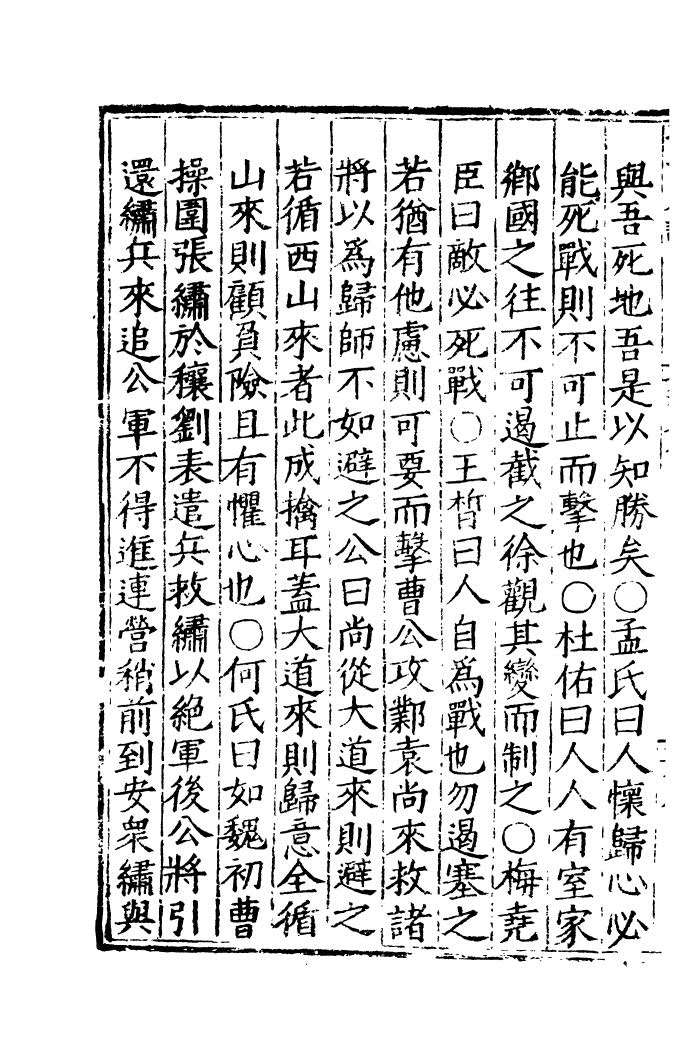 與吾死地吾是以知勝矣○孟氏曰人懷歸心必
能死戰則不可止而擊也○杜佑曰人人有室家
鄉國之往不可遏截之徐觀其變而制之○梅堯
臣曰敵必死戰○王晳曰人自爲戰也勿遏塞之
若猶有他慮則可要而擊曹公攻鄴袁尚來救諸
將以爲歸師不如避之公曰尚從大道來則避之
若循西山來者此成擒耳蓋大道來則歸意全循
山來則顧負險且有懼心也○何氏曰如魏初曹
操圍張繡於穰劉表遣兵救繡以絕軍後公將引
還繡兵來追公軍不得進連營稍前到安衆繡與